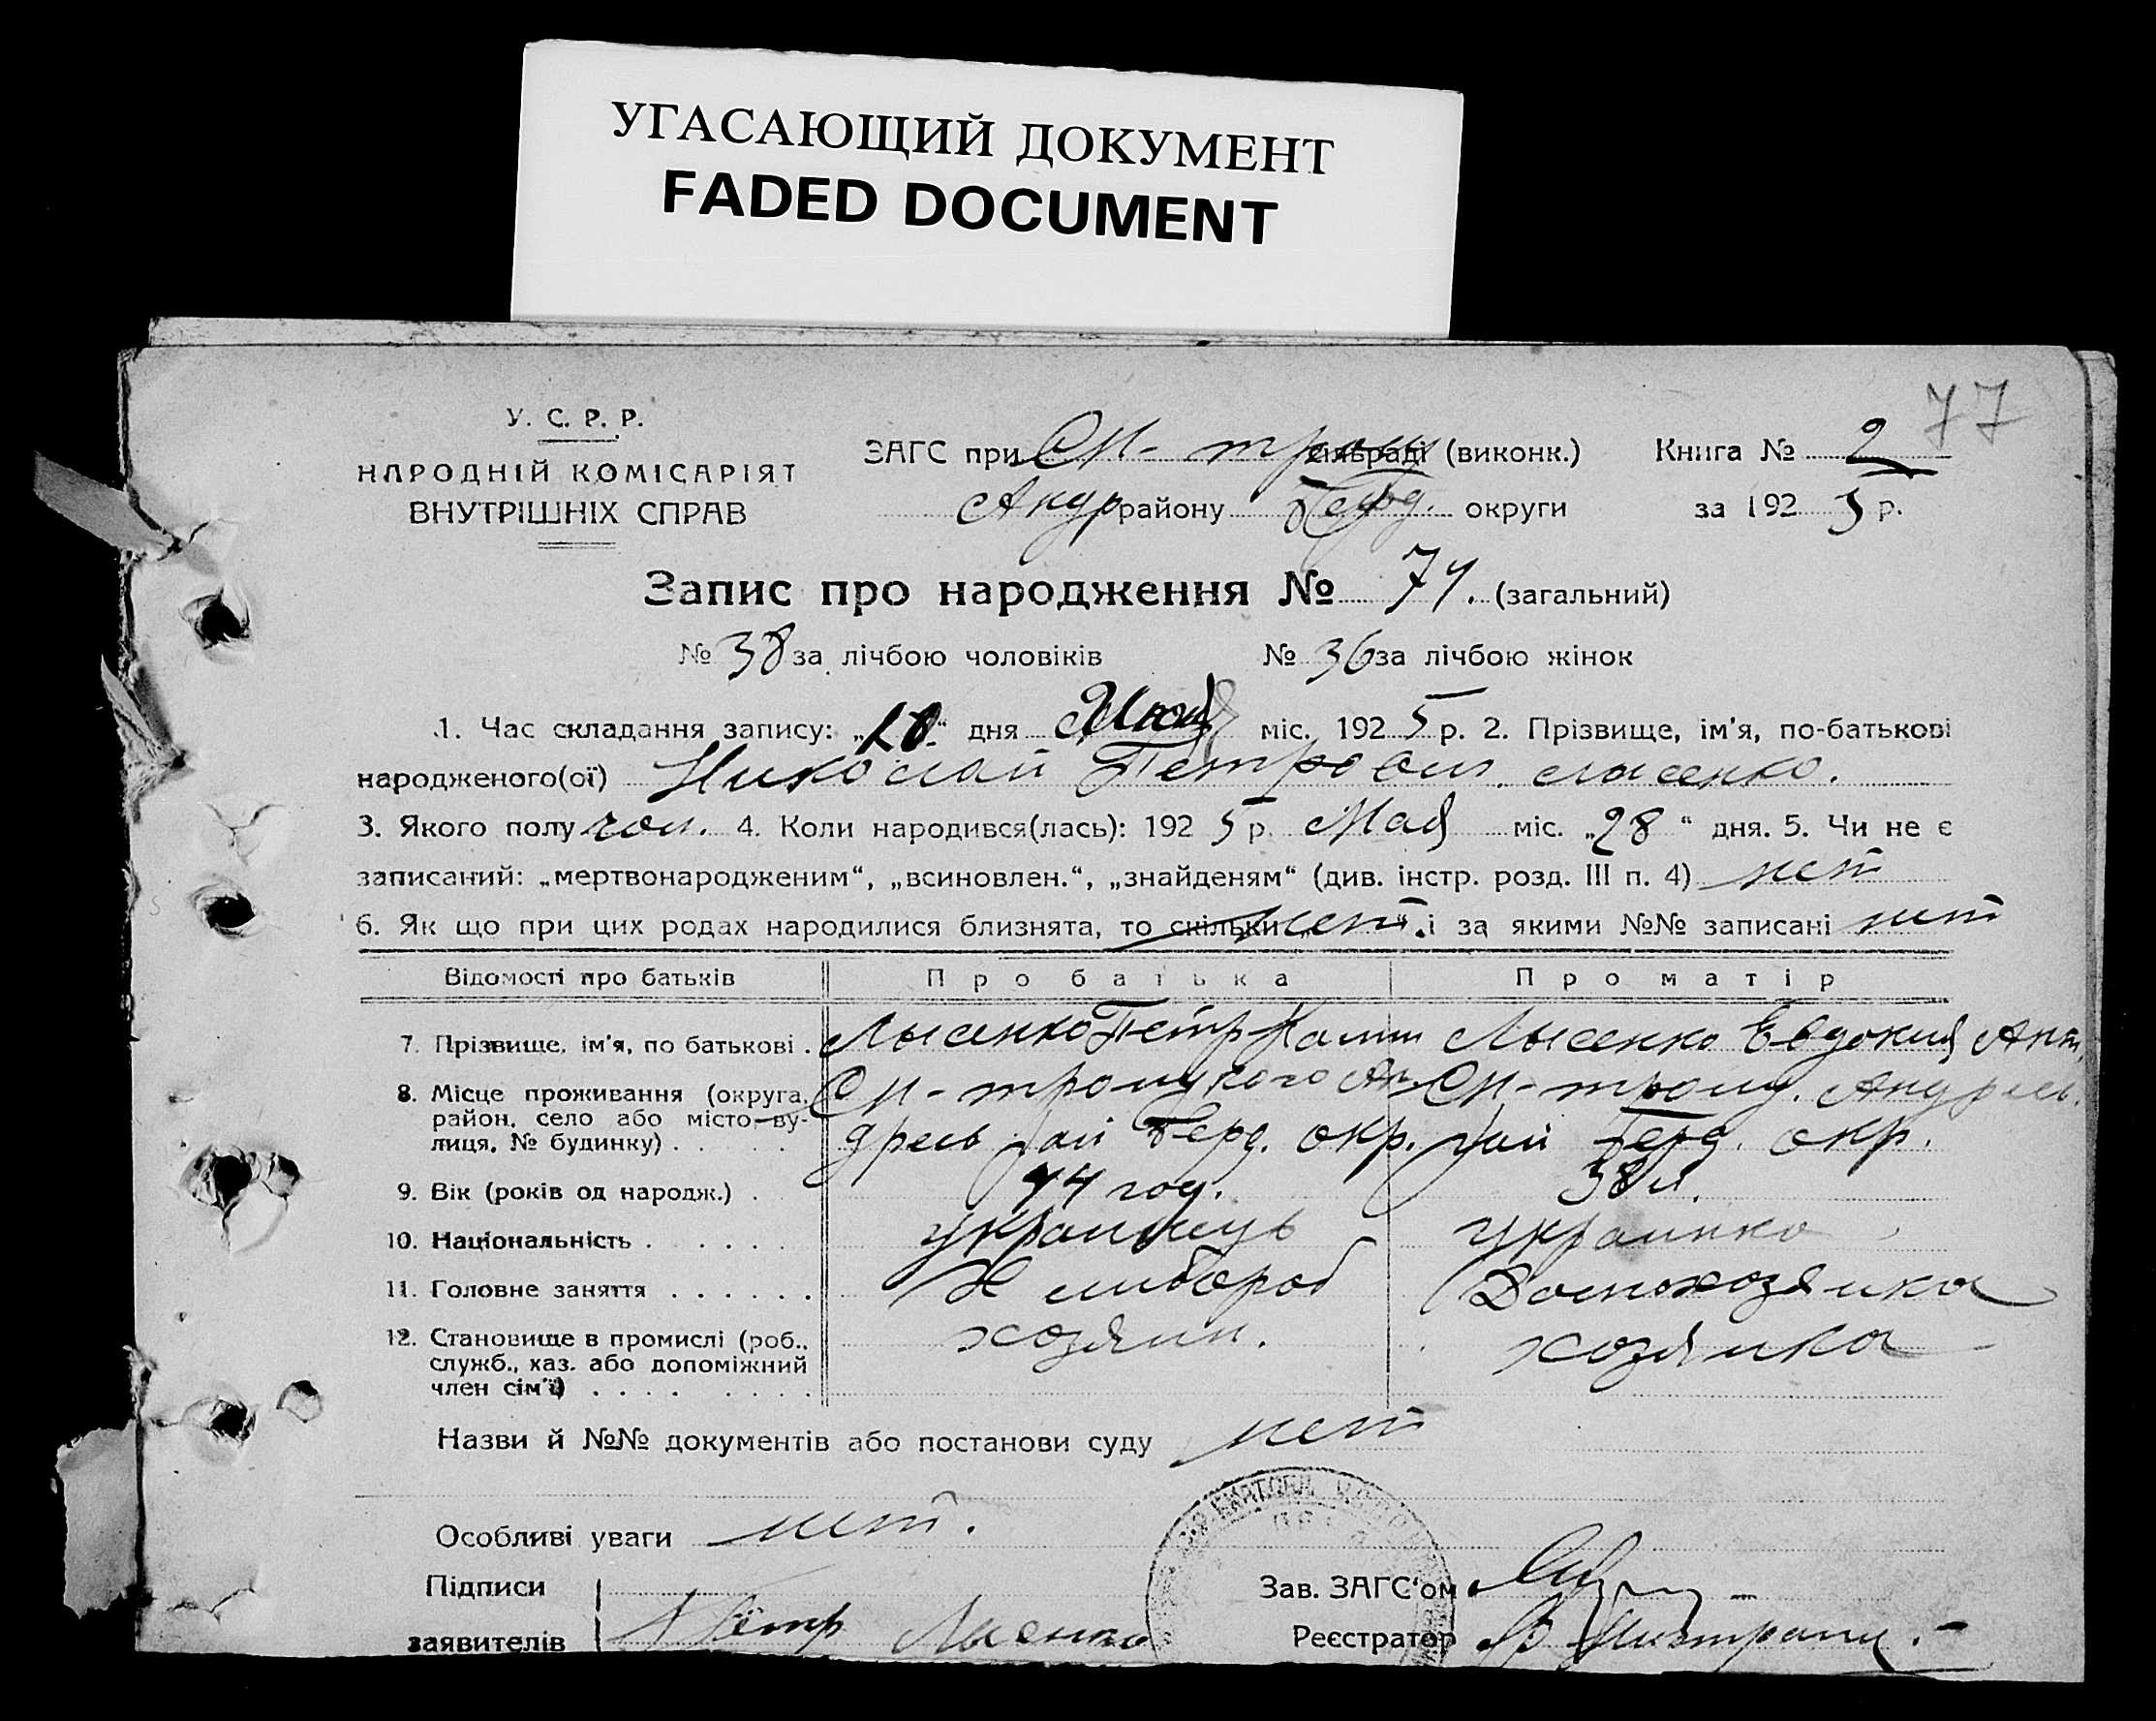 УГАСАЮЩИЙ ДОКУМЕНТ
FADED DOCUMENT
77
У. С. Р. Р.
НАРОДНІЙ КОМІСАРІЯТ
ВНУТРІШНІХ СПРАВ
ЗАГС при Ст- троиц сільраді (виконк.) Книга № 2
Андр району Берд. округи за 1925 р.
Запис про народження № 74. (загальний)
№ 38 за лічбою чоловіків № 36 за лічбою жінок
1. Час складання запису: „10“ дня міс. 1925 р. 2. Прізвище, ім'я, по-батькові
народженого(ої) Николай Петрович Лысенко.
3. Якого полу чол. 4. Коли народився(лась): 1925 р. Мая міс. „28“ дня. 5. Чи не є
записаний: „мертвонародженим“, „всиновлен.“, „знайденям“ (див. інстр. розд. III п. 4) нет
6. Як що при цих родах народилися близнята, то скільки нет. і за якими №№ записані нет
Відомості про батьків Про батька Про матір
7. Прізвище, ім'я, по батькові . Лысенко Петр Лысенко Евдокия Ант.
8. Місце проживання (округа, район, село або місто-вулиця, № будинку) . .
Берд. окр. рай Берд. окр.
9. Вік (років од народж.) . 44 год. 38 л.
10. Національність . . . . . українець українка
11. Головне заняття . . . . . . Хлибороб Домохозяйка
12. Становище в промислі (роб., служб., хаз. або допоміжний член сім'ї) . . . . . . . . хозяин. хозяйка
Назви й №№ документів або постанови суду нет
Особливі уваги нет.
Підписи Зав. ЗАГС'ом
заявителів Петр Лысенко Реєстратор